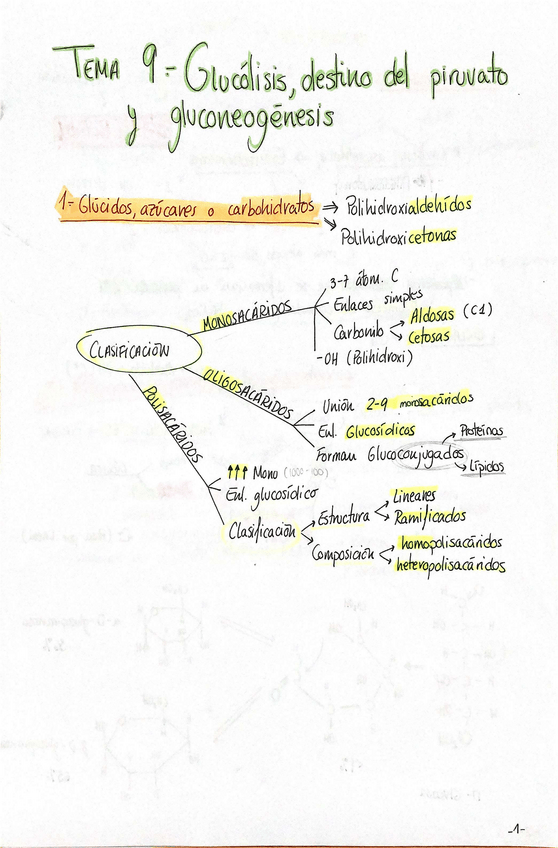 TEMA 9.- Glucólisis, destino del piruvato
y gluconeogénesis
1.- Glúcidos, azúcares o carbohidratos ⇒ Polihidroxialdehídos
⇒ Polihidroxicetonas
CLASIFICACIÓN
MONOSACÁRIDOS
3-7 átom. C
Enlaces simples
Carbonilo
Aldosas (C1)
cetosas
-OH (Polihidroxi)
OLIGOSACÁRIDOS
Unión 2-9 monosacáridos
Enl. Glucosídicos
Forman Glucoconjugados
Proteínas
Lípidos
POLISACÁRIDOS
↑↑↑ Mono (1000-100)
Enl. glucosídico
Clasificación
Estructura
Lineales
Ramificados
Composición
homopolisacáridos
heteropolisacáridos
-1-